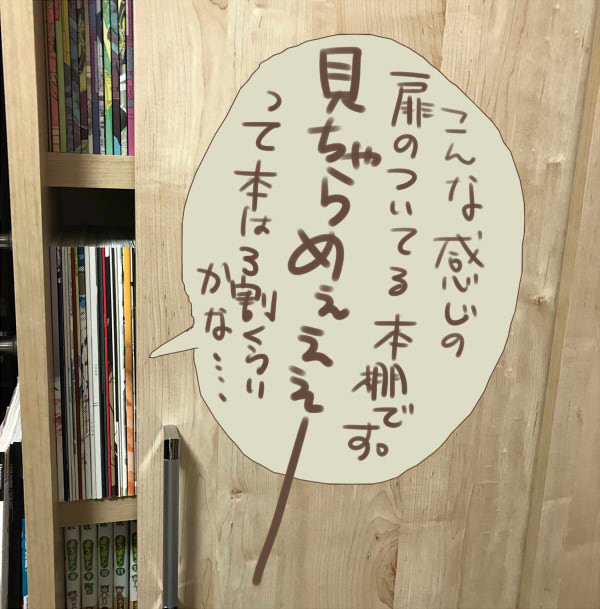 こんな感じの
扉のついてる本棚です。
見ちゃらめぇぇぇー
って本は3割くらい
かな…、